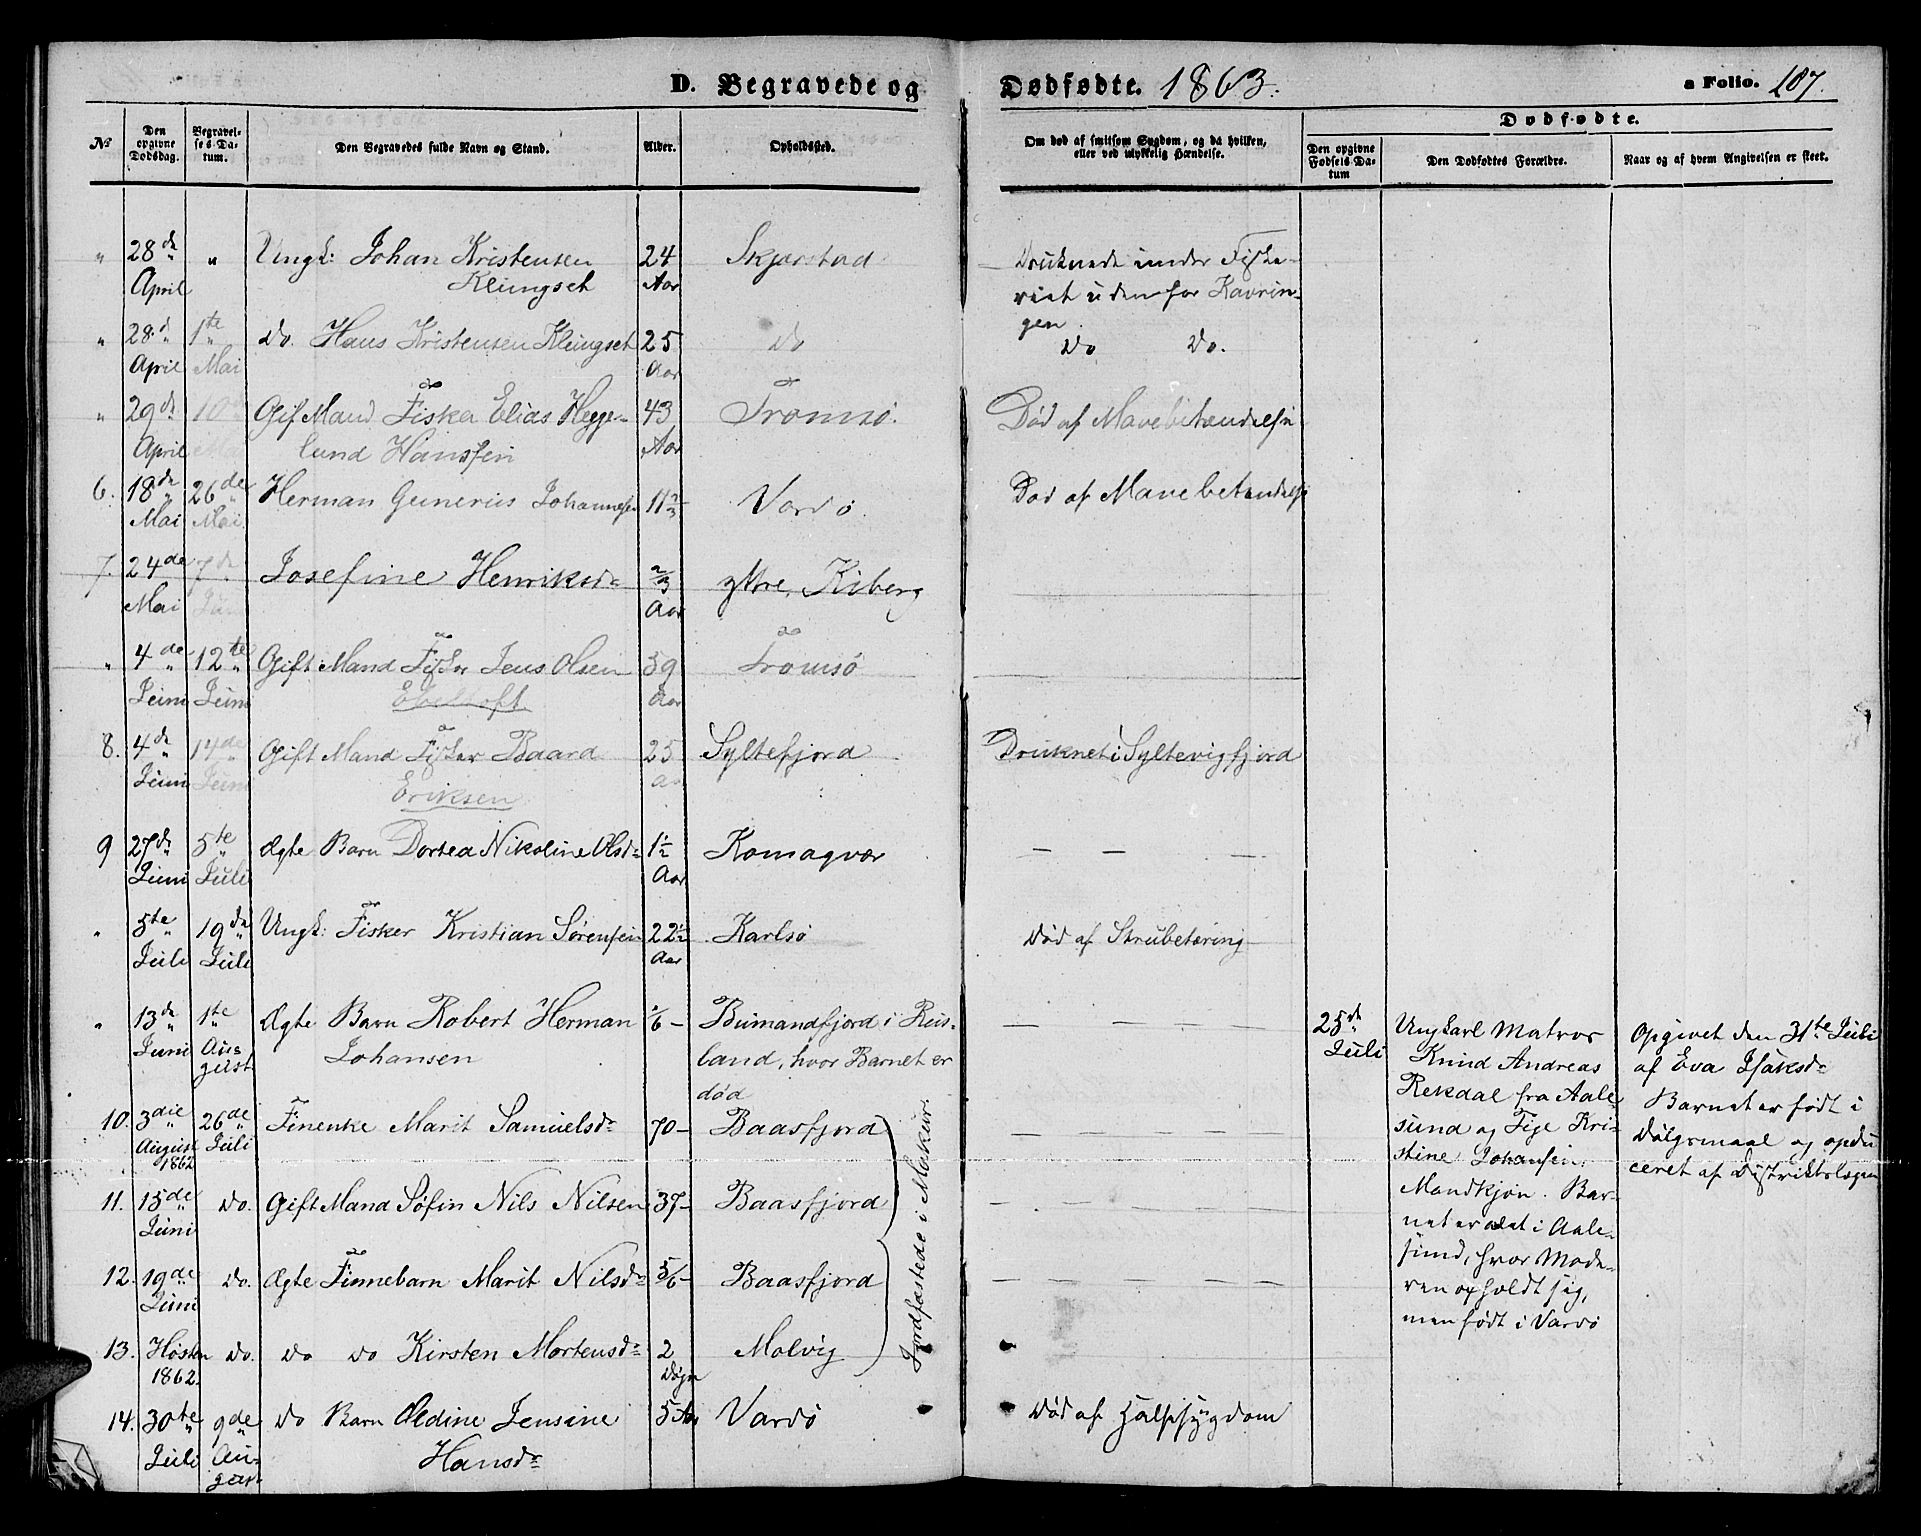 D. Begravede og Dødfødte. 1863. a Folio. 107.
Dødfødte.
No
Den opgivne Dødsdag.
Begravelses-Datum.
Den Begravedes fulde Navn og Stand.
Alder.
Opholdssted.
Om død af smitsom Sygdom, og da hvilken, eller ved ulykkelig Hændelse.
Den opgivne Fødsels-Datum
Den Dødfødtes Forældre.
Naar og af hvem Angivelsen er skeet.
" 28de " Ungk: Johan Kristensen 24 Skjerstad Druknede under Fiske-
April Klungset Aar riet udenfor Kavrin-
gen.
" 28de 1te do. Hans Kristensen Klungset 25 do do do.
April Mai Aar
" 29de 10de Gift Mand Fisker Elias Hegge- 43 Tromsø. Død af Mavebetændelse
April Mai lund Hansen Aar
6. 18de 26de Herman Gunerius Johannesen 11 2/3 Vardø. Død af Mavebetændelse
Mai Mai
7. 24de 7de Josefine Henriksdr 2/3 yttre Kiberg
Mai Juni Aar
" 4de 12te Gift Mand Fisker Jens Olsen 59 Tromsø
Juni Juni Ebeltoft Aar
8. 4de 14de Gift Mand Fisker Baard 25 Syltefjord Druknet i Syltevigfjord
Juni Juni Eriksen Aar
9 27de 5te Ægte Barn Dortea Nikoline Olsdr 1 1/2 Komagvær — — —
Juni Juli Aar
" 5te 19de Ungk: Fisker Kristian Sørensen 22 1/2 Karlsø Død af Strubetæring
Juli Juli Aar
" 13de 1te Ægte Barn Robert Herman 1/6 – Bumandfjord i Rus- — — —
Juni Au- Johansen land, hvor Barnet er
gust død
10. 3die 26de Finenke Marit Samuelsdr 70 – Baasfjord
August Juli
1862
11. 15de do. Gift Mand Søfin Nils Nilsen 37 – Baasfjord
Juni
12. 19de do. Ægte Finnebarn Marit Nilsdr 5/6 – Baasfjord
Juni
13. Høsten do. do do Kirsten Mortensdr 2 Molvig
1862. Døgn
Jordfæstede i Makur.
14. 30te 9de do Barn Oldine Jensine 5 Aar Vardø Død af Halssygdom
Juli Au- Hansdr
gust
25de
Juli
Ungkarl Matros
Knud Andreas
Rekdal fra Aale-
sund og Pige Kri-
stine Johansen.
Mandkjøn. Bar-
net er avlet i Aale-
sund, hvor Mode-
ren opholdt sig,
men født i Vardø
Opgivet den 31te Juli
af Eva Isaksdr
Barnet er født i
Dølgsmaal og opdu
ceret af Distriktslægen